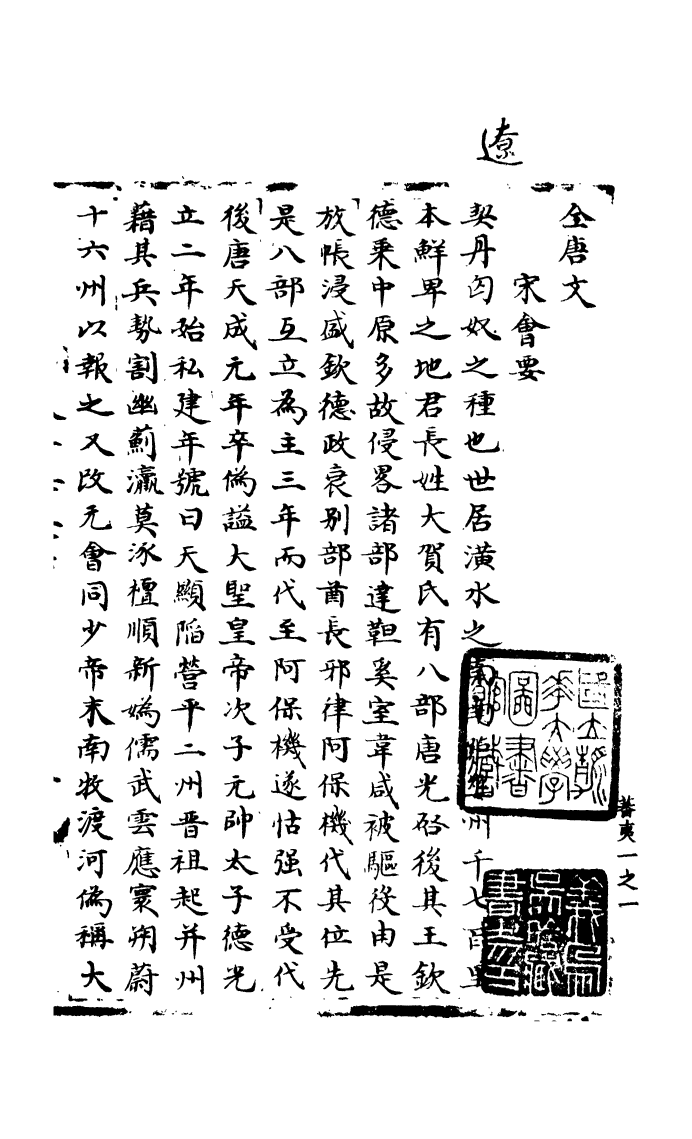 遼
全唐文
宋會要
契丹匈奴之種也世居潢水之南州千七百里
本鮮卑之地君長姓大賀氏有八部唐光啓後其王欽
德乘中原多故侵畧諸部達靼奚室韋咸被驅役由是
放帳浸盛欽德政衰别部酋長邪律阿保機代其位先
是八部互立為主三年而代至阿保機遂怙强不受代
後唐天成元年卒偽謚大聖皇帝次子元帥太子德光
立二年始私建年號曰天顯陷營平二州晋祖起并州
藉其兵勢割幽薊瀛莫涿檀順新媯儒武雲應寰朔蔚
十六州以報之又改元會同少帝末南牧渡河偽稱大
蕃夷一之一
國立清華大學圖書館藏